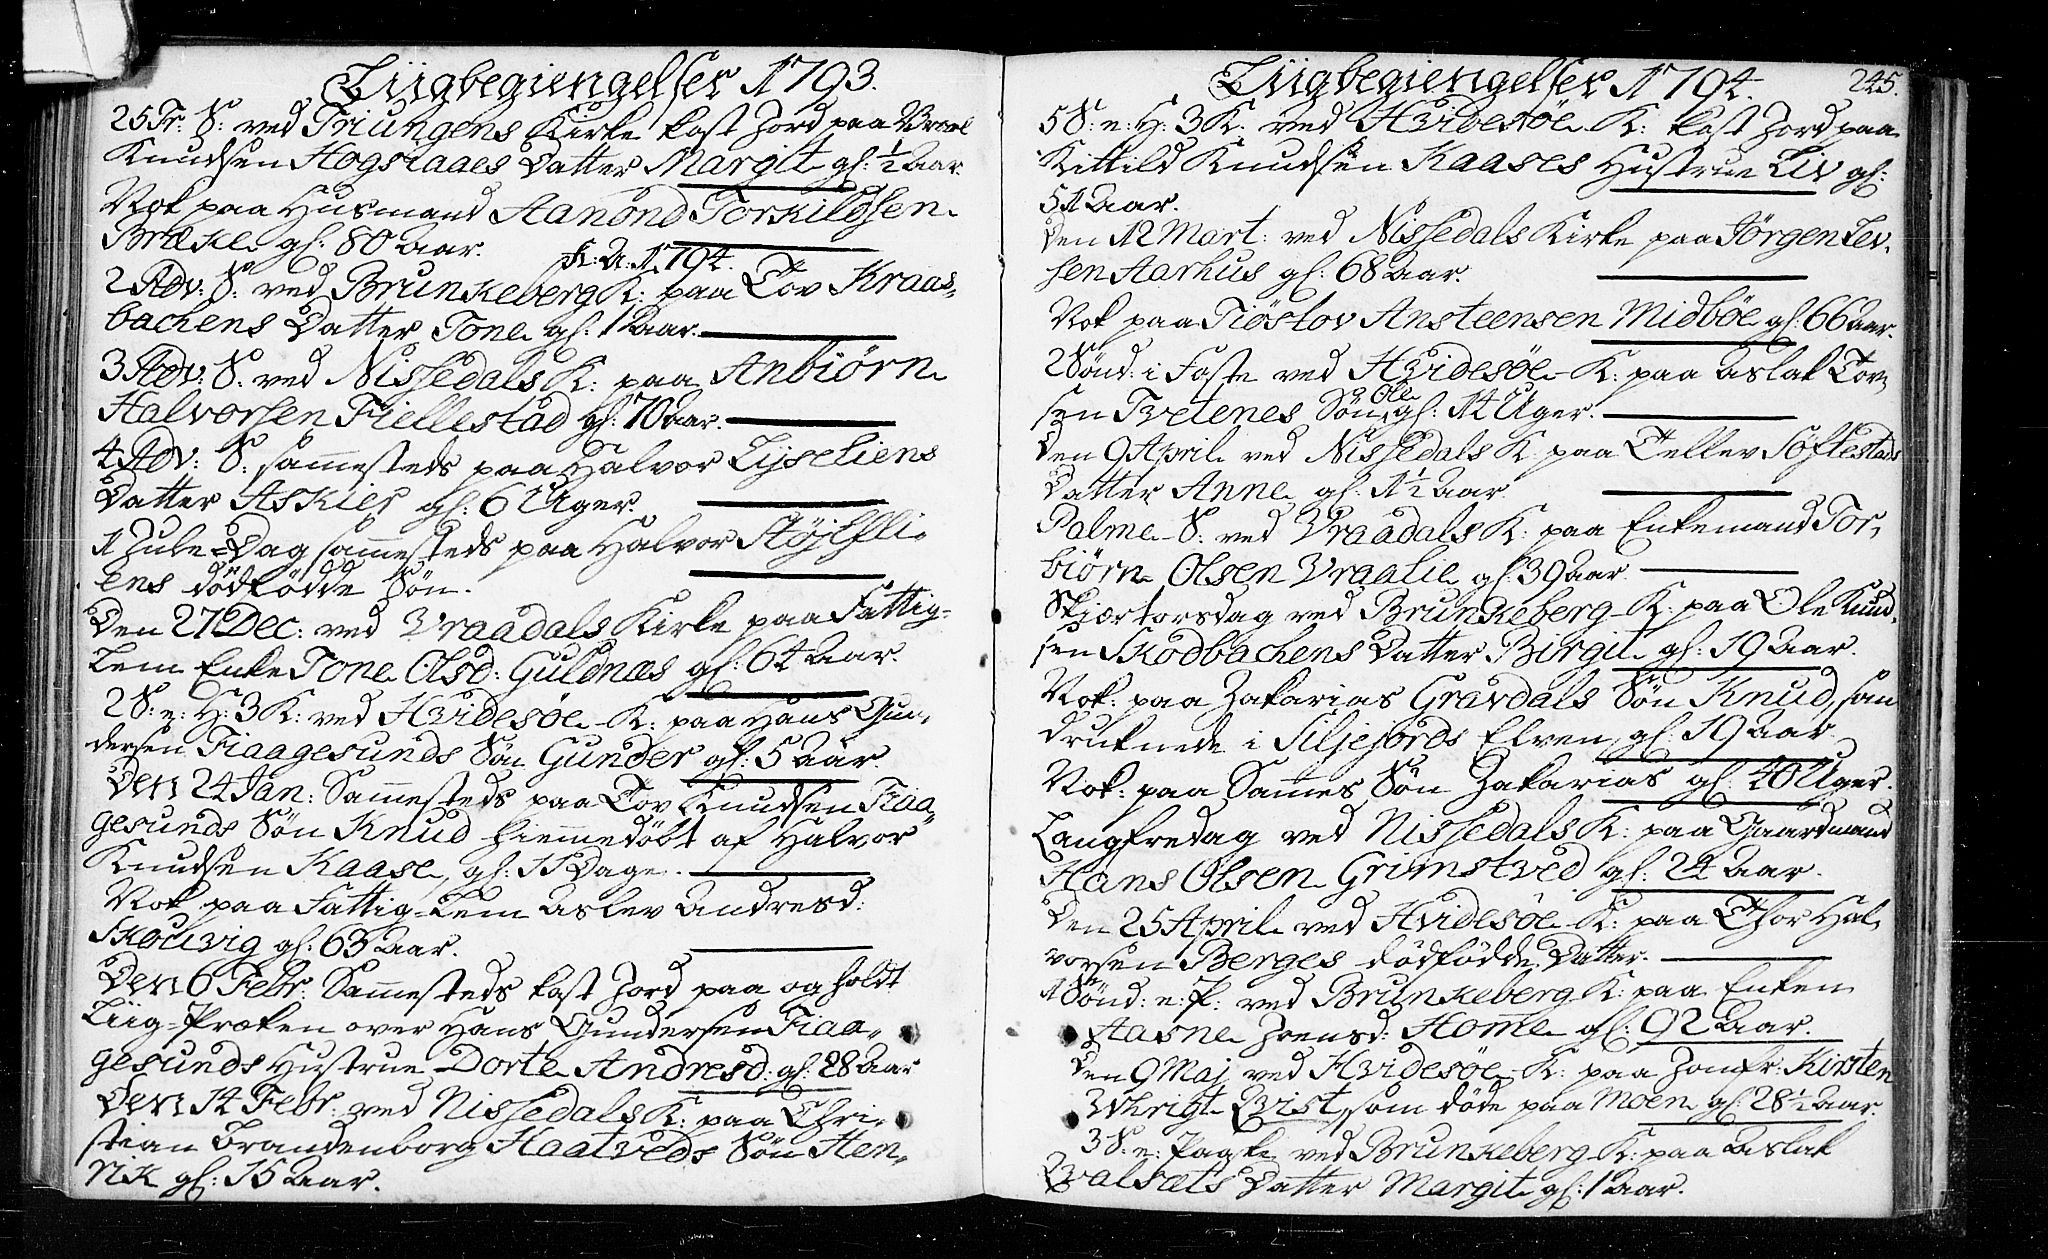 Liigbegiengelser 1793.
25 Tr: S: ved Triungens Kirke kast Jord paa
Knudsen Hogstaaes Datter Margit gl: 1/2 Aar.
Nok paa Husmand Aanond Torkildsen
Bræke gl: 80 Aar.
K: A: 1794.
2 Adv: S: ved Brunkeberg K: paa Tov Kraas-
bachens Datter Tone gl: 1 Aar.
3 Adv: S: ved Nissedals K: paa Anbiørn
Halvorsen Fiellestad gl: 70 Aar.
4 Adv: S: sammesteds paa Halvor Lyseliens
Datter Askier gl: 6 Uger.
1 Jule-Dag sammesteds paa Halvor
ens dödfödde Sön.
Den 27 Dec: ved Vraadals Kirke paa Fattig-
Lem Enke Tone Olsd: Guldnæs gl: 64 Aar.
2 S: e: H: 3 K: ved Hvidesøe K: paa Hans Gun-
dersen Fiaagesunds Sön Gunder gl: 5 Aar.
Den 24 Jan: Sammesteds paa Tov Knudsen Fiaa-
gesunds Sön Knud hiemmedöbt af Halvor
Knudsen Kaase, gl: 11 Dage.
Nok paa Fattig-Lem Aslev Andresd:
Skouvig gl: 63 Aar.
Den 6 Febr: Sammesteds kast Jord paa og holdt
Liig-Præken over Hans Gundersen Fiaa-
gesunds Hustrue Dorte Andresd: gl: 28 Aar
Den 14 Febr: ved Nissedals K: paa Chri-
stian Brandenborg Haatveds Sön Hen-
rik gl: 15 Aar.
Liigbegiengelser 1794.
245.
5 S: e: H: 3 K: ved Hvidesöe K: kast Jord paa
Kittild Knudsen Kaases Hustrue Liv gl:
51 Aar.
Den 12 Mart: ved Nissedals Kirke paa Jörgen Lev-
sen Aarhus gl: 68 Aar.
Nok paa Tiöstov Ansteensen Midböe gl: 66 Aar.
2 Sönd: i Faste ved Hvidesöe K: paa Aslak Tov-
sen Tvetenes Sön Ole gl: 14 Uger.
Den 9 April ved Nissedals K: paa Tellev Söftestads
Datter Anne gl: 1 1/2 Aar.
Palme S: ved Vraadals K: paa Enkemand Tor-
biörn Olsen Vraalie gl: 39 Aar.
Skjærtorsdag ved Brunkeberg K: paa Ole Knud-
sen Skodbachens Datter Birgit gl: 19 Aar.
Nok: paa Zakarias Gravdals Sön Knud, som
druknede i Siljejords Elven, gl: 19 Aar.
Nok: paa Sammes Sön Zakarias gl: 40 Uger.
Langfredag ved Nissedals K: paa Gaardmand
Hans Olsen Grimstved gl: 24 Aar.
Den 25 April ved Hvidesöe K: paa Thor Hal-
vorsen Berges dödfödde Datter.
1 Sönd: e: P: ved Brunkeberg K: paa Enken
Aasne Joensd: Homme gl: 92 Aar.
Den 9 Maj ved Hvidesöe K: paa Jomfr: Kirsten
Qvist, som döde paa Moen gl: 28 1/2 Aar.
3 S: e: Paaske ved Brunkeberg K: paa Aslak
Qvalsæts Datter Margit gl: 1 Aar.